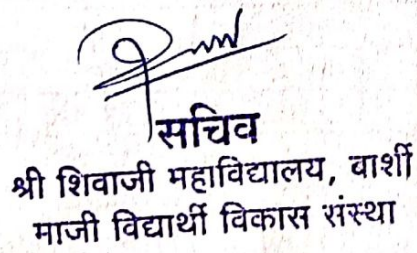 सचिव
श्री शिवाजी महाविद्यालय, बार्शी
माजी विद्यार्थी विकास संस्था